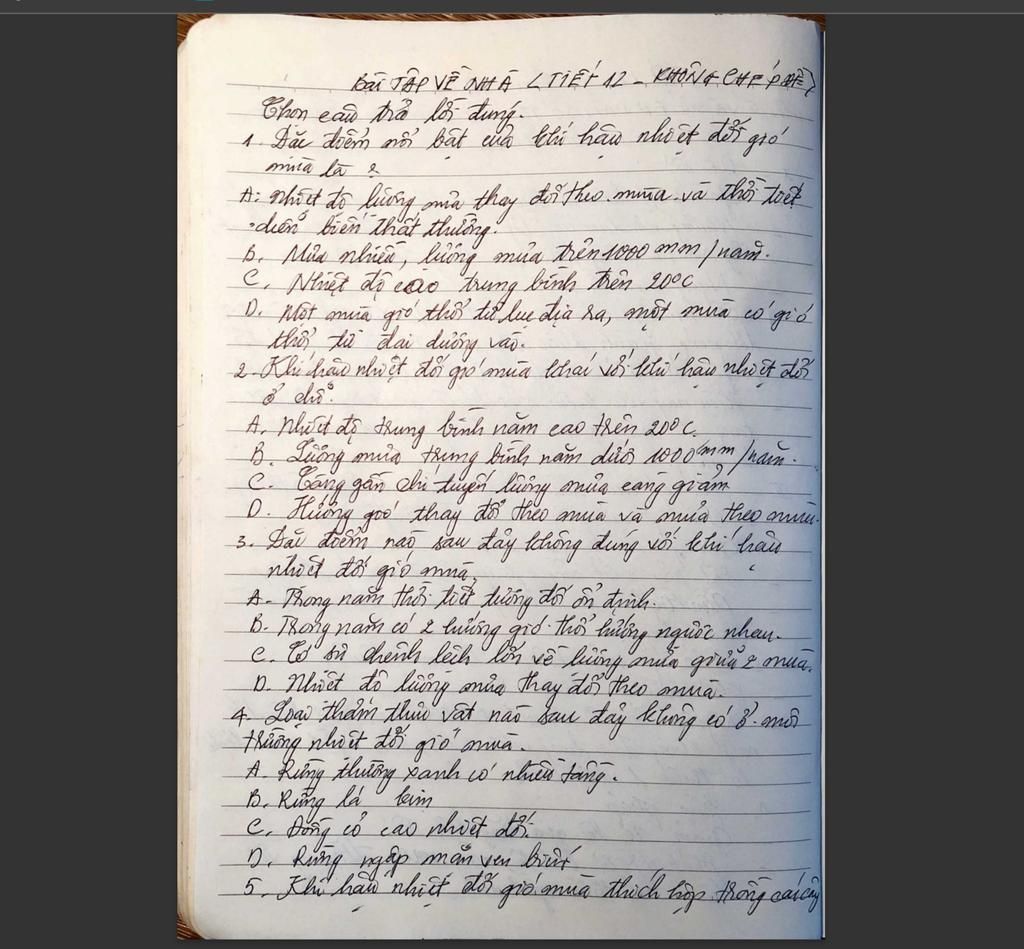 BÀI TẬP VỀ NHÀ (TIẾT 12 - KHÔNG CHÉP ĐỀ)
Chọn câu trả lời đúng.
1. Đặc điểm nổi bật của khí hậu nhiệt đới gió
mùa là ?
A: Nhiệt độ lượng mưa thay đổi theo mùa và thời tiết
diễn biến thất thường.
B. Mưa nhiều, lượng mưa trên 1000 mm/năm.
C. Nhiệt độ cao trung bình trên 20°C
D. Một mùa gió thổi từ lục địa ra, một mùa có gió
thổi từ đại dương vào.
2. Khí hậu nhiệt đới gió mùa khác với khí hậu nhiệt đới
ở chỗ:
A. Nhiệt độ trung bình năm cao trên 20°C.
B. Lượng mưa trung bình năm dưới 1000 mm/năm.
C. Càng gần chí tuyến lượng mưa càng giảm
D. Hướng gió thay đổi theo mùa và mưa theo mùa.
3. Đặc điểm nào sau đây không đúng với khí hậu
nhiệt đới gió mùa.
A. Trong năm thời tiết tương đối ổn định.
B. Trong năm có 2 hướng gió thổi hướng ngược nhau.
C. Có sự chênh lệch lớn về lượng mưa giữa 2 mùa.
D. Nhiệt độ lượng mưa thay đổi theo mùa.
4. Loại thảm thực vật nào sau đây không có ở môi
trường nhiệt đới gió mùa.
A. Rừng thường xanh có nhiều tầng.
B. Rừng lá kim
C. Đồng cỏ cao nhiệt đới.
D. Rừng ngập mặn ven biển
5. Khí hậu nhiệt đới gió mùa thích hợp trồng các cây